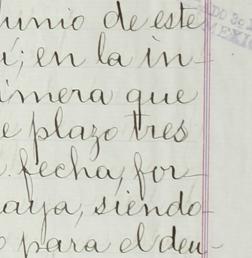 junio de este
; en la in-
rimera que
e plazo tres
fecha, for-
aya, siendo
para el deu-